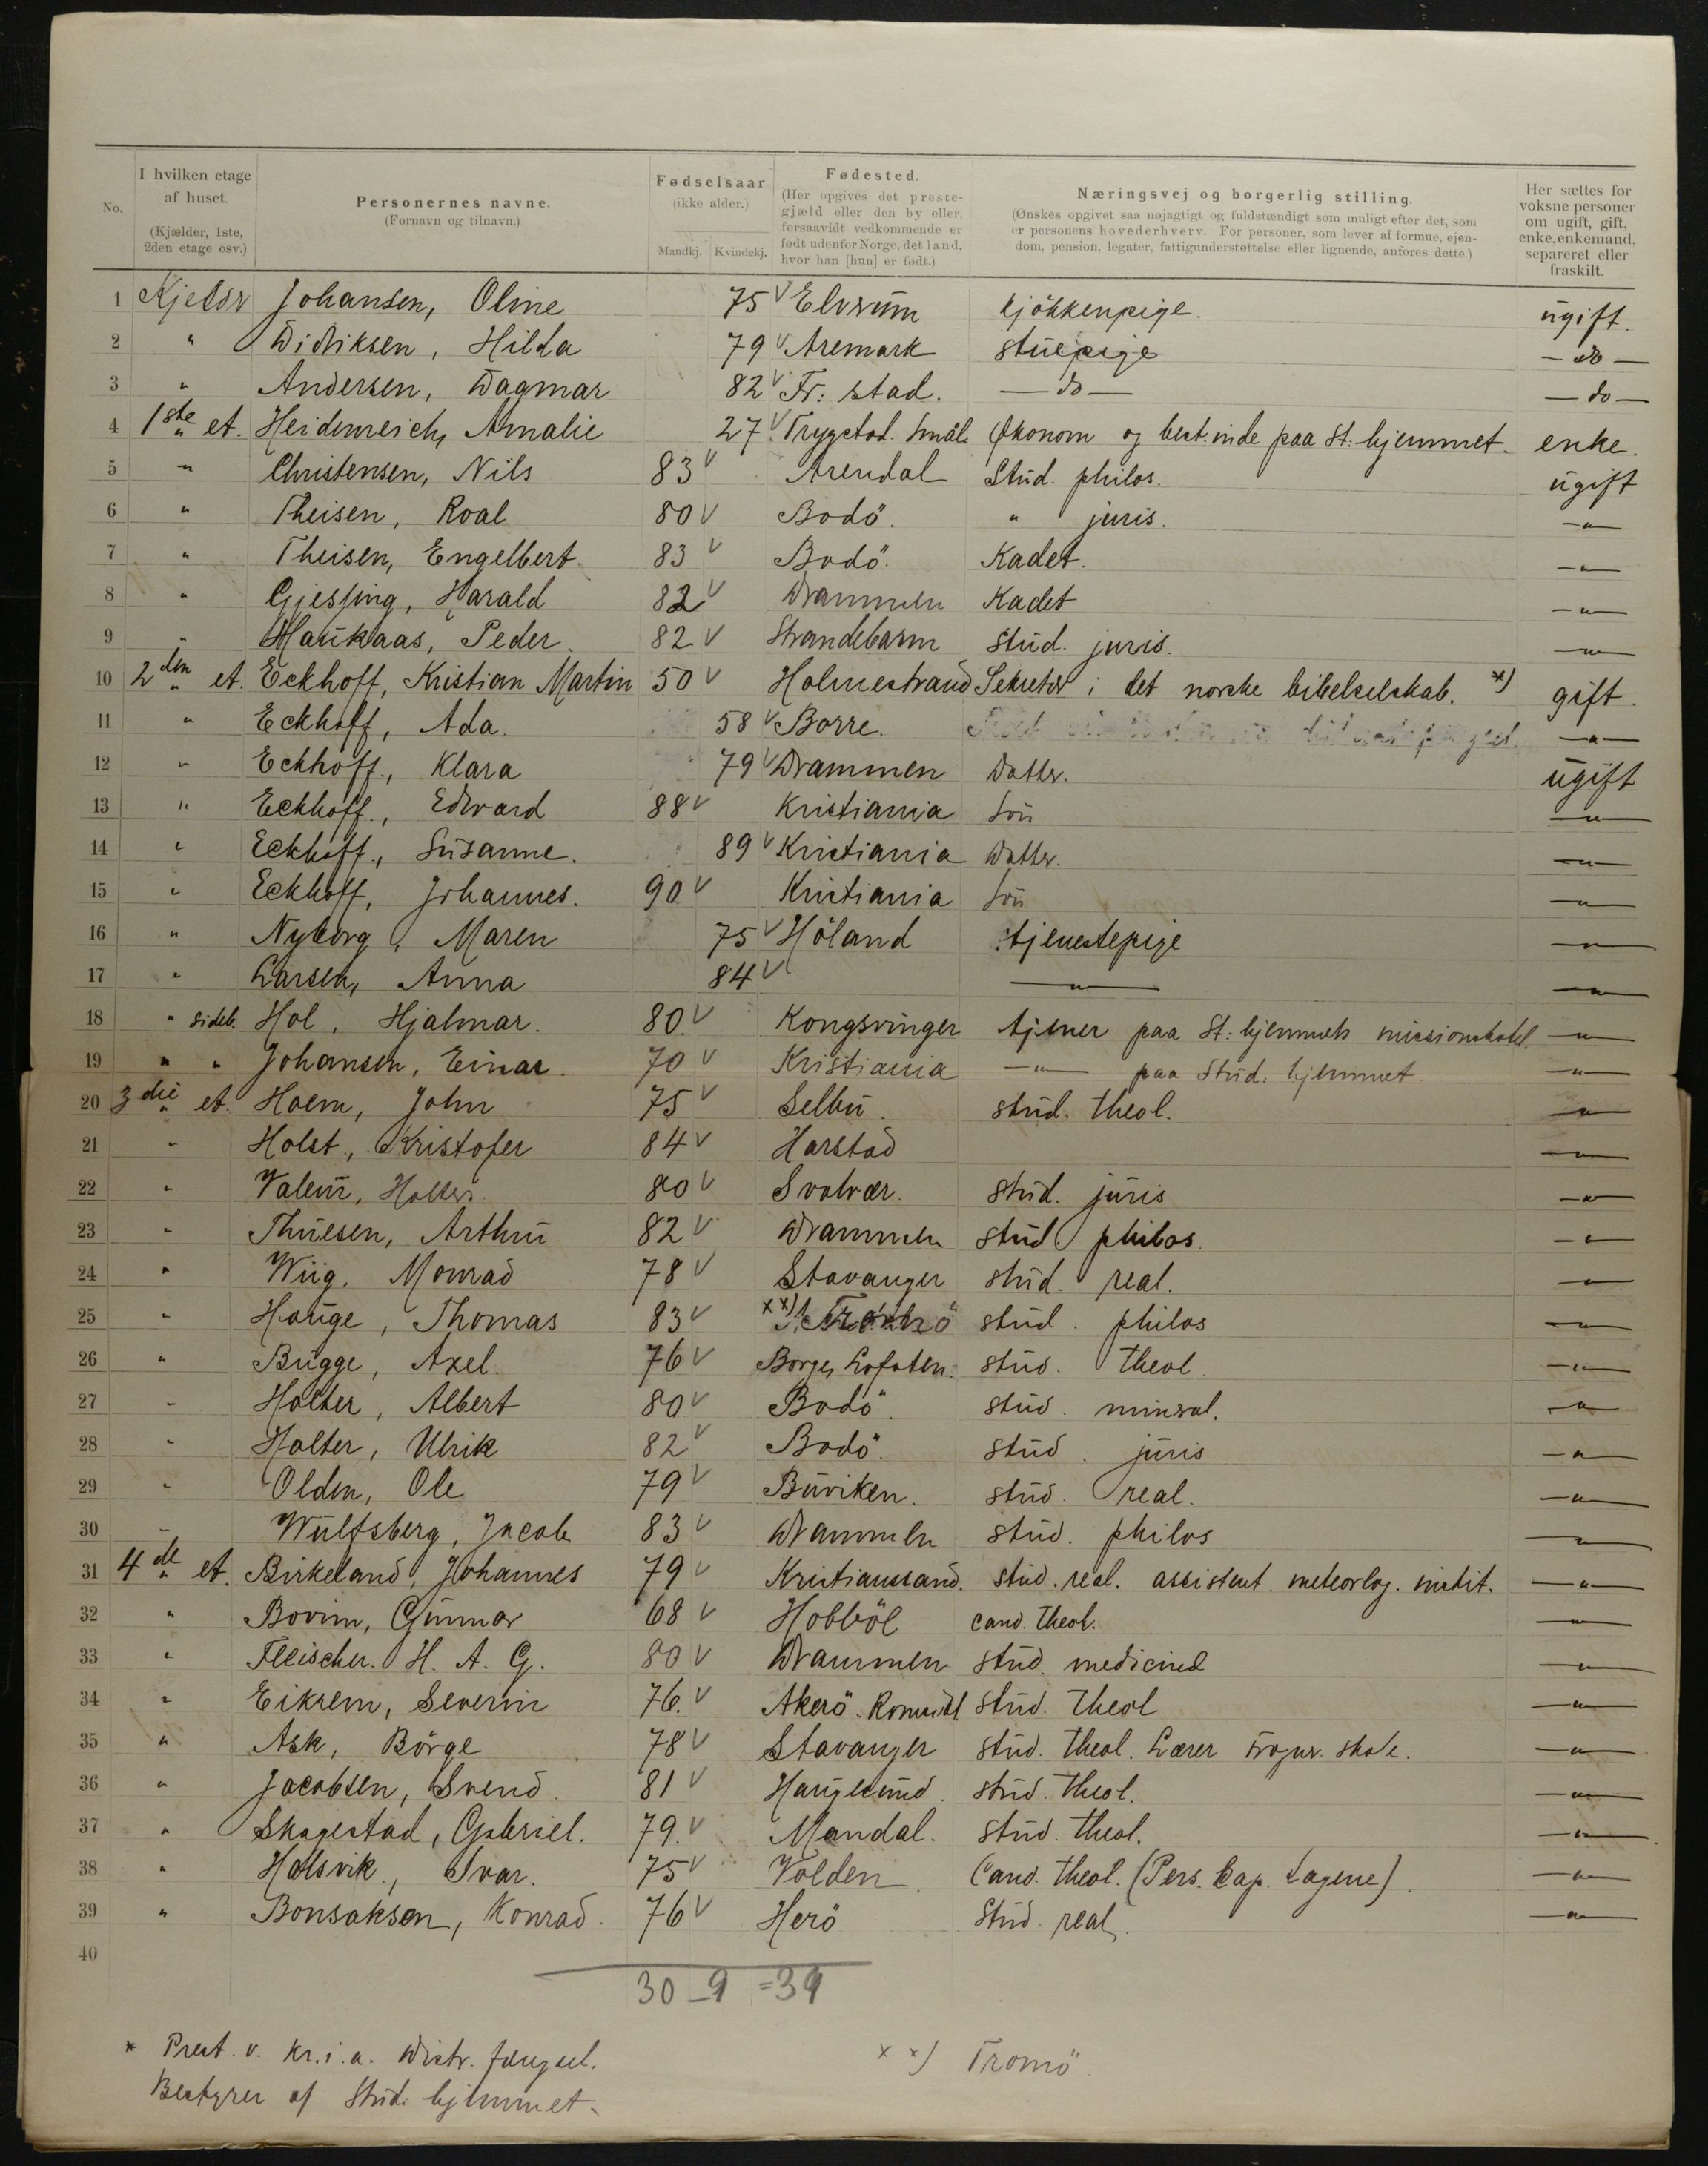 No.
I hvilken etage af huset. (Kjælder, 1ste, 2den etage osv.)
Personernes navne. (Fornavn og tilnavn.)
Fødselsaar (ikke alder.) Mandkj. Kvindekj.
Fødested. (Her opgives det prestegjæld eller den by eller, forsaavidt vedkommende er født udenfor Norge, det land, hvor han [hun] er født.)
Næringsvej og borgerlig stilling. (Ønskes opgivet saa nøjagtigt og fuldstændigt som muligt efter det, som er personens hovederhverv. For personer, som lever af formue, ejendom, pension, legater, fattigunderstøttelse eller lignende, anføres dette.)
Her sættes for voksne personer om ugift, gift, enke, enkemand, separeret eller fraskilt.
1 Kjelder Johansen, Oline 75 v Elverum kjökkenpige. ugift.
2 " Didriksen, Hilda 79 v Aremark stuepige — do —
3 " Andersen, Dagmar 82 v Fr: stad. — do — — do —
4 1ste et. Heidenreich, Amalie 27 v Trygstad. Smål. Økonom og best.inde paa St: hjemmet. enke.
5 " Christensen, Nils 83 v Arendal Stud. philos. ugift
6 " Theisen, Roal 80 v Bodö. " juris. —"—
7 " Theisen, Engelbert 83 v Bodö. Kadet. —"—
8 " Gjessing, Harald 82 v Drammen Kadet —"—
9 " Haukaas, Peder. 82 v Strandebarm stud. juris. —"—
10 2den et. Eckhoff, Kristian Martin 50 v Holmestrand Sekretær i det norske bibelselskab. *) gift.
11 " Eckhoff, Ada. 58 v Borre. —"—
12 " Eckhoff, Klara 79 v Drammen Datter. ugift
13 " Eckhoff, Edvard 88 v Kristiania Sön —"—
14 " Eckhoff, Susanne. 89 v Kristiania Datter. —"—
15 " Eckhoff, Johannes. 90 v Kristiania Sön —"—
16 " Nyborg, Maren 75 v Höland tjenestepige —"—
17 " Larsen, Anna 84 v —"— —"—
18 " sideb. Hol, Hjalmar. 80. v Kongsvinger tjener paa St: hjemmets missionshotel —"—
19 " " Johansen, Einar. 70 v Kristiania —"— paa Stud. hjemmet. —"—
20 3die et. Hoem, John 75 v Selbu. stud. theol. —"—
21 " Holst, Kristofer 84 v Harstad —"—
22 " Valeur, 80 v Svolvær. stud. juris —"—
23 " Thuesen, Arthur 82 v Drammen stud philos. —"—
24 " Wiig, Monrad 78 v Stavanger stud. real. —"—
25 " Hauge, Thomas 83 v xx) stud. philos —"—
26 " Bugge, Axel. 76 v Borge, Lofoten. stud. theol. —"—
27 " Holter, Albert 80 v Bodö. stud. mineral. —"—
28 " Holter, Ulrik 82 v Bodö. stud. juris —"—
29 " Olden, Ole 79 v Buviken. stud. real. —"—
30 " Wulfsberg, Jacob 83 v Drammen stud. philos —"—
31 4de et. Birkeland, Johannes 79 v Kristianssand. stud. real. assistent meteorlog. instit. —"—
32 " Bovim, Gunnar 68 v Hobböl cand. theol. —"—
33 " Fleischer. H. A. G. 80 v Drammen stud. medicined —"—
34 " Eikrem, Severin 76. v Akerö. Romsdal stud. theol —"—
35 " Ask, Börge 78 v Stavanger stud. theol. Lærer Frogner. skole. —"—
36 " Jacobsen, Svend. 81 v Haugesund. stud. theol. —"—
37 " Skagestad, Gabriel. 79. v Mandal. stud. theol. —"—
38 " Halsvik, Ivar. 75 v Volden. Cand. theol. (Pers. Cap. Fagene). —"—
39 " Bonsaksen, Konrad. 76 v Herö Stud. real. —"—
40
30 – 9 = 39
* Prest. v. Kr.i.a. Distr. fængsel.
Bestyrer af Stud: hjemmet.
xx) Tromö